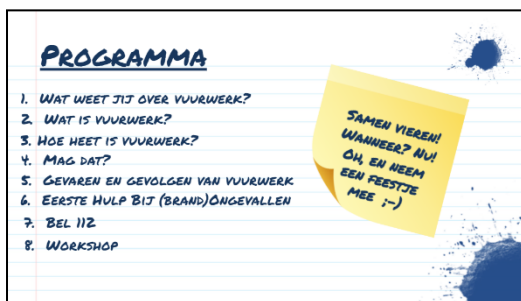 Programma
1. Wat weet jij over vuurwerk?
2. Wat is vuurwerk?
3. Hoe heet is vuurwerk?
4. Mag dat?
5. Gevaren en gevolgen van vuurwerk
6. Eerste Hulp Bij (brand)Ongevallen
7. Bel 112
8. Workshop
Samen vieren!
Wanneer? Nu!
Oh, en neem
een feestje
mee ;-)